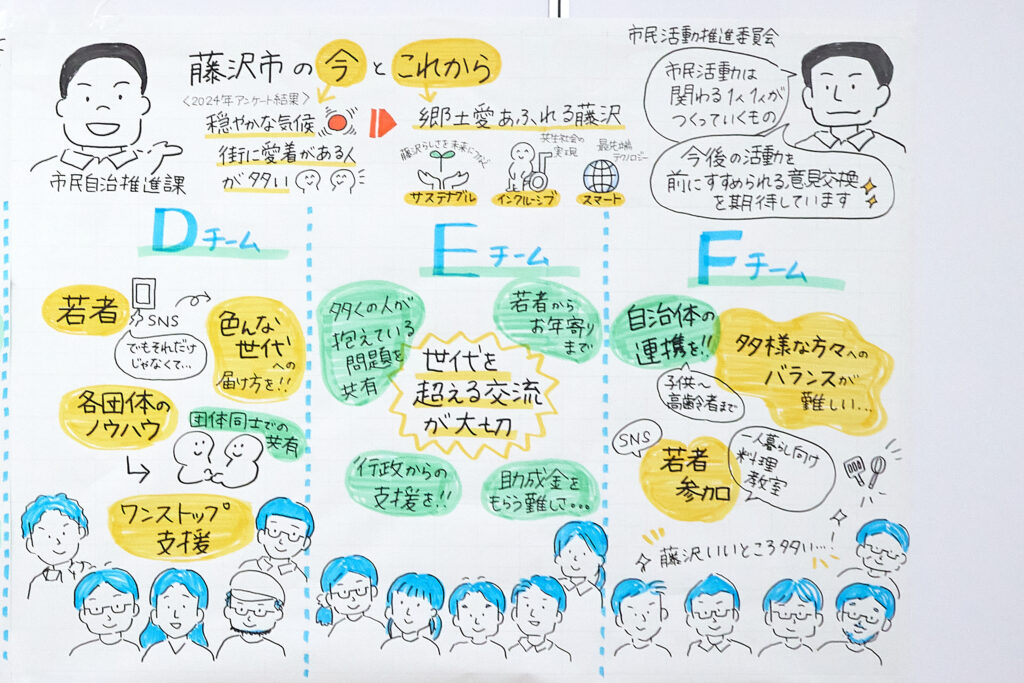 藤沢市の今とこれから
<2024年アンケート結果>
穏やかな気候
街に愛着がある人
が多い
市民自治推進課
郷土愛あふれる藤沢
藤沢らしさを未来につなぐ
サステナブル
共生社会の
実現
インクルーシブ
最先端
テクノロジー
スマート
市民活動推進委員会
市民活動は
関わる1人1人が
つくっていくもの
今後の活動を
前にすすめられる意見交換
を期待しています
Dチーム
若者
SNS
でもそれだけ
じゃなくて…
色んな
世代
への
届け方を!!
各団体の
ノウハウ
団体同士での
共有
ワンストップ
支援
Eチーム
多くの人が
抱えている
問題を
共有
若者から
お年寄り
まで
世代を
超える交流
が大切
行政からの
支援を!!
助成金を
もらう難しさ…
Fチーム
自治体の
連携を!!
子供〜
高齢者まで
多様な方々への
バランスが
難しい…
SNS
若者
参加
一人暮らし向け
料理
教室
藤沢いいところ多い…!